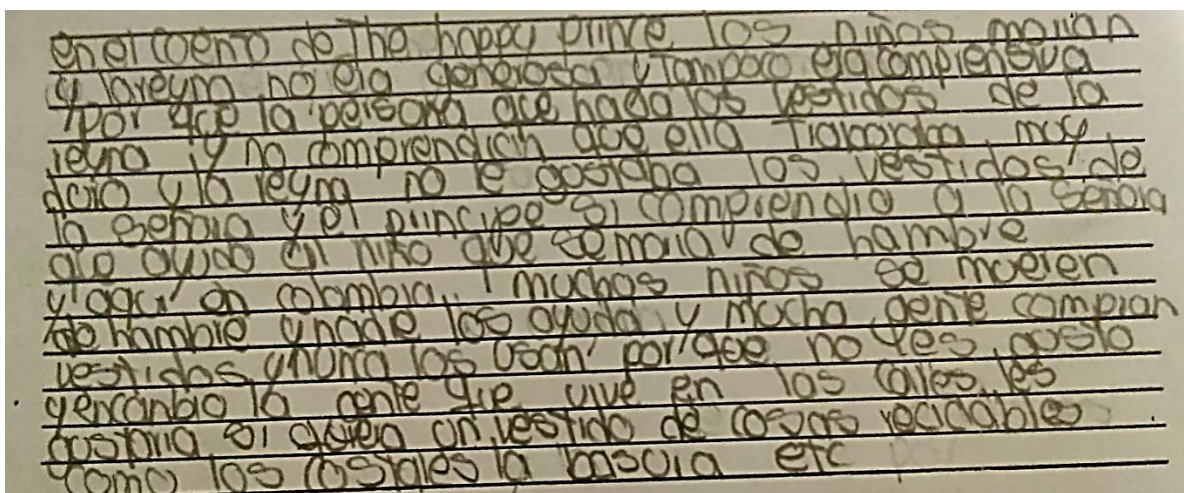 en el coento de The happy prince los niños morian
y la reyna no era generosa y tampoco era comprensiva
por qce la persona qce hacia los vestidos de la
reyna y no comprendian que ella Trabajaba muy
doro y la reyna no le gostaba los vestidos de
la señora y el principe si comprendio a la señora
que ayudo un niño que se moria de hambre
y aqui en colombia muchos niños se moeren
de hambre y nadie los ayuda y mucha gente compran
vestidos y nunca los osan por qoe no les gosto
y en canbio la gente qce vive en las calles les
gostaria si qciera on vestido de cosas reciclables
como los costales la basora etc